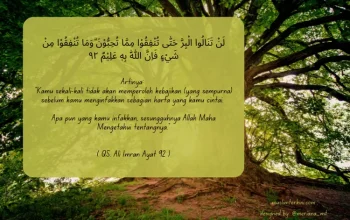 لَنْ تَنَالُوا الْبِرَّ حَتّٰى تُنْفِقُوْا مِمَّا تُحِبُّوْنَ ۗوَمَا تُنْفِقُوْا مِنْ
شَيْءٍ فَاِنَّ اللّٰهَ بِهٖ عَلِيْمٌ ٩٢
Artinya
"Kamu sekali-kali tidak akan memperoleh kebajikan (yang sempurna)
sebelum kamu menginfakkan sebagian harta yang kamu cintai.
Apa pun yang kamu infakkan, sesungguhnya Allah Maha
Mengetahui tentangnya.
( QS. Ali Imran Ayat 92 )
designed by